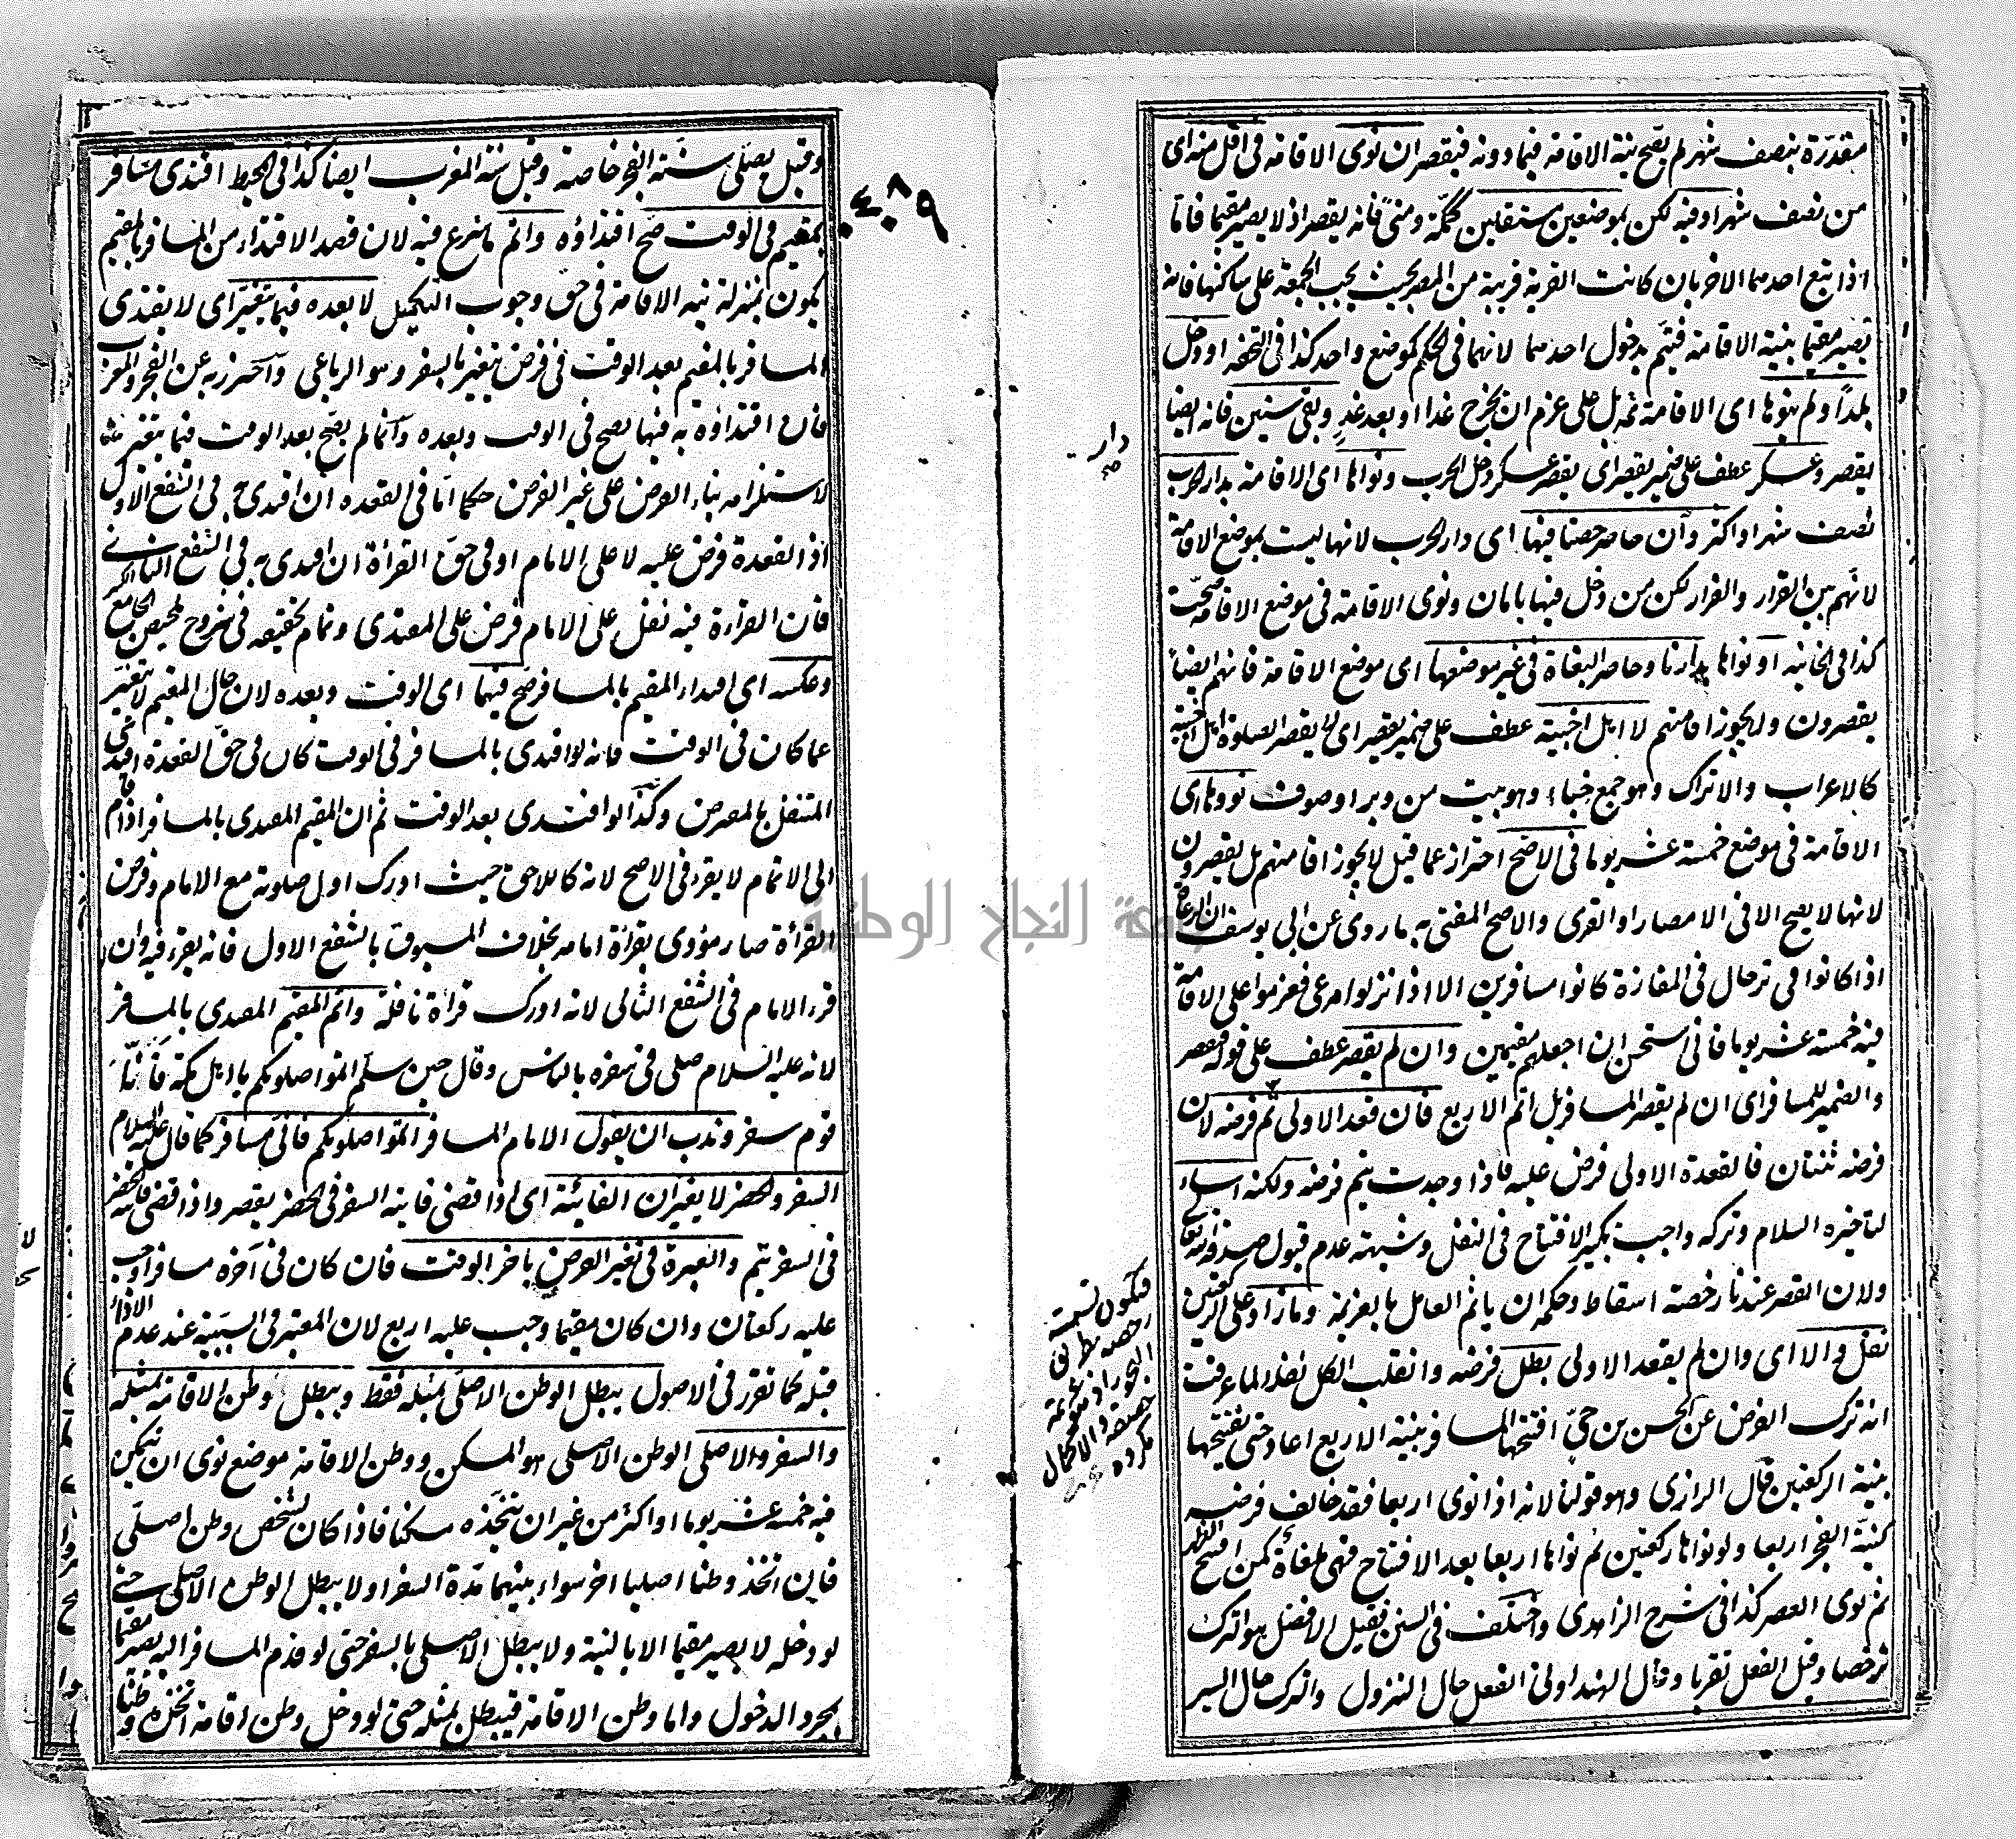 مقدرة بنصف شهر لم يصح نية الاقامة فيما دونه فيقصر ان نوى الاقامة فى اقل منه اى
من نصف شهر او فيه لكن بموضعين مستقلين كمكة ومنى فانه يقصر اذ لا يصير مقيما فاما
اذا تبع احدهما الاخر بان كانت القرية قريبة من المصر بحيث يجب الجمعة على ساكنها فانه
يصير مقيما بنية الاقامة فيتم بدخول احدهما لانهما فى الحكم كموضع واحد كذا فى التحفه او دخل
بلدا ولم ينوها اى الاقامة ثمه بل على عزم ان يخرج غدا او بعد غد وبقى سنين فانه ايضا
يقصر وعسكر عطف على ضمير يقصر اى يقصر عسكر دخل الحرب ونواها اى الاقامة بدار الحرب
دار صح
نصف شهر او اكثر وان حاصر حصنا فيها اى دار الحرب لانها ليست بموضع الاقامة
لانهم بين القرار والفرار لكن من دخل فيها بامان ونوى الاقامة فى موضع الاقامة صحت
كذا فى الخانيه او نواها بدارنا وحاصر البغاة فى غير موضعها اى موضع الاقامة فانهم ايضا
يقصرون ولا يجوز اقامتهم لا اهل اخبية عطف على ضمير يقصر اى لا يقصر الصلوة اهل اخبية
كالاعراب والاتراك وهو جمع خباء وهو بيت من وبر او صوف نووها اى
الاقامة فى موضع خمسة عشر يوما فى الاصح احتراز عما قيل لا يجوز اقامتهم بل يقصرون
لانها لا يصح الا فى الامصار او القرى والاصح المفتى به ما روى عن ابى يوسف ان الرعاة
اذا كانوا فى ترحال فى المفازة كانوا مسافرين الا اذا نزلوا مرعى فعزموا على الاقامة
فيه خمسة عشر يوما فانى استحسن ان اجعلهم مقيمين وان لم يقصر عطف على قوله فيقصر
والضمير للمسافر اى ان لم يقصر المسافر بل اتم الاربع فان قعد الاولى تم فرضه لان
فرضه ثنتان فالقعدة الاولى فرض عليه فاذا وجدت يتم فرضه ولكنه اساء
لتاخيره السلام وتركه واجب تكبير الافتتاح فى النفل وشبهته عدم قبول صدقة الله تعالى
ولان القصر عندنا رخصة اسقاط وحكمه ان ياثم العامل بالعزيمة وما زاد على الركعتين
نفل والا اى وان لم يقعد الاولى بطل فرضه وانقلب الكل نفلا لما عرفت
انه ترك الفرض عن الحسن بن حى افتتحها المسافر بنية الاربع اعاد حتى يفتتحها
بنية الركعتين قال الرازى وهو قولنا لانه اذا نوى اربعا فقد خالف فرضه
كنية الفجر اربعا ولو نواها ركعتين ثم نواها اربعا بعد الافتتاح فهى ملغاة كمن افتتح الظهر
ثم نوى العصر كذا فى شرح الزاهدى واختلف فى السنن فقيل الافضل هو الترك
ترخصا وقيل الفعل تقربا وقال الهندوانى الفعل حال النزول والترك حال السير
فيكون تسميته
رخصة بطريق
والاكمال
وقيل يصلى سنة الفجر خاصة وقيل سنة المغرب ايضا كذا فى المحيط اقتدى مسافر
بمقيم فى الوقت صح اقتداؤه واتم ما شرع فيه لان قصد الاقتداء من المسافر بالمقيم
يكون بمنزلة نية الاقامة فى حق وجوب التكميل لا بعده فيما يتغير اى لا يقتدى
المسافر بالمقيم بعد الوقت فى فرض يتغير بالسفر وهو الرباعى واحترز به عن الفجر والمغرب
فان اقتداؤه به فيهما يصح فى الوقت وبعده وانما لم يصح بعد الوقت فيما يتغير
لاستلزامه بناء الفرض على غير الفرض حكما اما فى القعدة ان اقتدى به فى الشفع الاول
اذ القعدة فرض عليه لا على الامام او فى حق القراة ان اقتدى به فى الشفع الثانى
فان القراءة فيه نفل على الامام فرض على المقتدى وتمام تحقيقه فى شروح تلخيص الجامع الكبير
وعكسه اى اقتداء المقيم بالمسافر صح فيهما اى الوقت وبعده لان حال المقيم لا يتغير
عما كان فى الوقت فانه لو اقتدى بالمسافر فى الوقت كان فى حق القعدة اقتدى
المتنفل بالمفترض وكذا لو اقتدى بعد الوقت ثم ان المقيم المقتدى بالمسافر اذا قام
الى الاتمام لا يقرء فى الاصح لانه كاللاحق حيث ادرك اول صلوته مع الامام وفرض
القراة صار مؤدى بقراة امامه بخلاف المسبوق بالشفع الاول فانه يقرء فيه وان
قرء الامام فى الشفع الثانى لانه ادرك قراة نافلة واتم المقيم المقتدى بالمسافر
لانه عليه السلام صلى فى سفره بالناس وقال حين سلم اتموا صلوتكم يا اهل مكة فانا
قوم سفر وندب ان يقول الامام المسافر اتموا صلوتكم فانى مسافر كما قال عليه السلام
السفر والحضر لا يغيران الفائتة اى اذا قضى فائتة السفر فى الحضر يقصر واذا قضى فائتة الحضر
فى السفر يتم والعبرة فى تغير الفرض باخر الوقت فان كان فى آخره مسافرا وجب
عليه ركعتان وان كان مقيما وجب عليه اربع لان المعتبر فى السببية عند عدم الاداء
قبله كما تقرر فى الاصول يبطل الوطن الاصلى بمثله فقط ويبطل وطن الاقامة بمثله
والسفر والاصلى الوطن الاصلى هو المسكن ووطن الاقامة موضع نوى ان يتمكن
فيه خمسة عشر يوما او اكثر من غير ان يتخذه مسكنا فاذا كان لشخص وطن اصلى
فان اتخذ وطنا اصليا اخر سواء بينهما مدة السفر اولا يبطل الوطن الاصلى حتى
لو دخله لا يصير مقيما الا بالنية ولا يبطل الاصلى بالسفر حتى لو قدم المسافر اليه يصير مقيما
بمجرد الدخول واما وطن الاقامة فيبطل بمثله حتى لو دخل وطن اقامة اتخذه وطنا
جامعة النجاح الوطنية